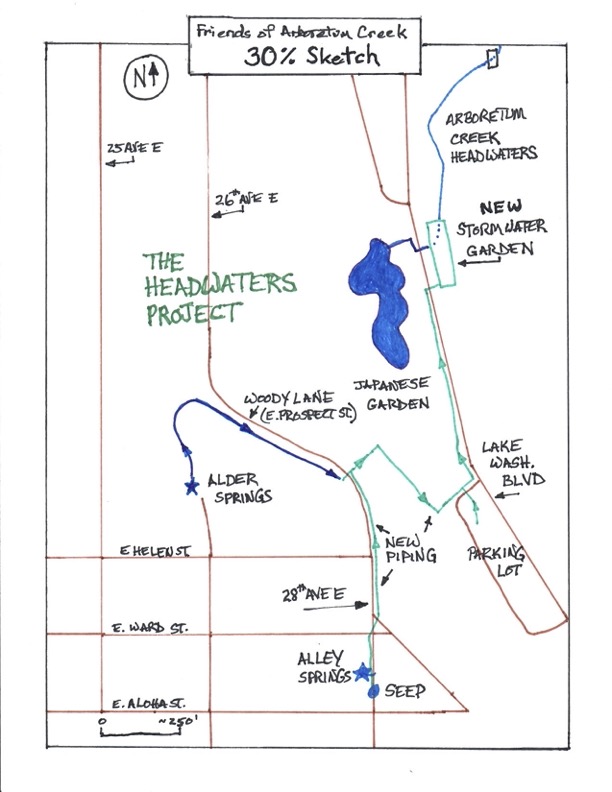 Friends of Arboretum Creek
30% Sketch
N
ARBORETUM
CREEK
HEADWATERS
25 AVE E
26th AVE E
NEW
STORMWATER
GARDEN
THE
HEADWATERS
PROJECT
JAPANESE
GARDEN
WOODY LANE
(E. PROSPECT ST.)
LAKE
WASH.
BLVD
ALDER
SPRINGS
NEW
PIPING
PARKING
LOT
E HELEN ST
28th AVE E
E. WARD ST.
ALLEY
SPRINGS
SEEP
E. ALOHA ST.
0 ~250'